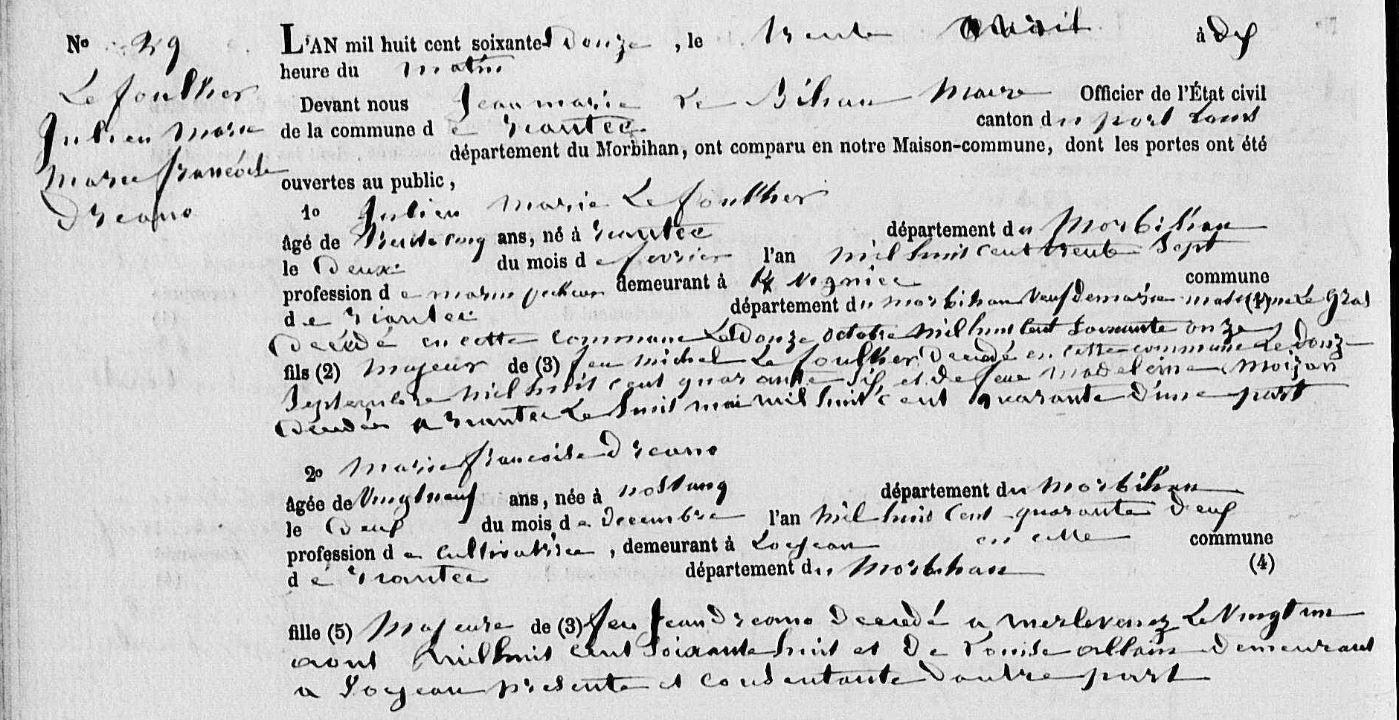 No 29
Le foulher
Julien Marie
Marie françoise
Dreano
L'AN mil huit cent soixante Douze, le trente à dix
heure du matin
Devant nous Jean marie Le Bihan Maire Officier de l'État civil
de la commune de riantec canton du port Louis
département du Morbihan, ont comparu en notre Maison-commune, dont les portes ont été
ouvertes au public,
1o Julien marie Le foulher
âgé de trente cinq ans, né à riantec département du Morbihan
le Deux du mois de fevrier l'an mil huit cent trente sept
profession de marin pecheur demeurant à commune
de riantec département du morbihan Veuf de marie (1) Le Gras
Decédé en cette commune Le Douze octobre mil huit cent soixante onze
fils (2) majeur de (3) feu michel Le foulher Decedé en cette commune Le Douze
Septembre mil huit cent quarante six et de feue madeleine moizan
Decédée a riantec Le huit mai mil huit cent quarante D'une part
2o Marie françoise Dreano
âgée de Vingt neuf ans, née à nostang département du Morbihan
le Deux du mois de decembre l'an mil huit cent quarante Deux
profession de cultivatrice, demeurant à Locjean en cette commune
de riantec département du Morbihan (4)
fille (5) Majeure de (3) feu Jean Dreano Decedé a merlevenez Le Vingt un
aout mil huit cent soixante huit et de Louise allain Demeurant
a Locjean presente et consentante D'autre part